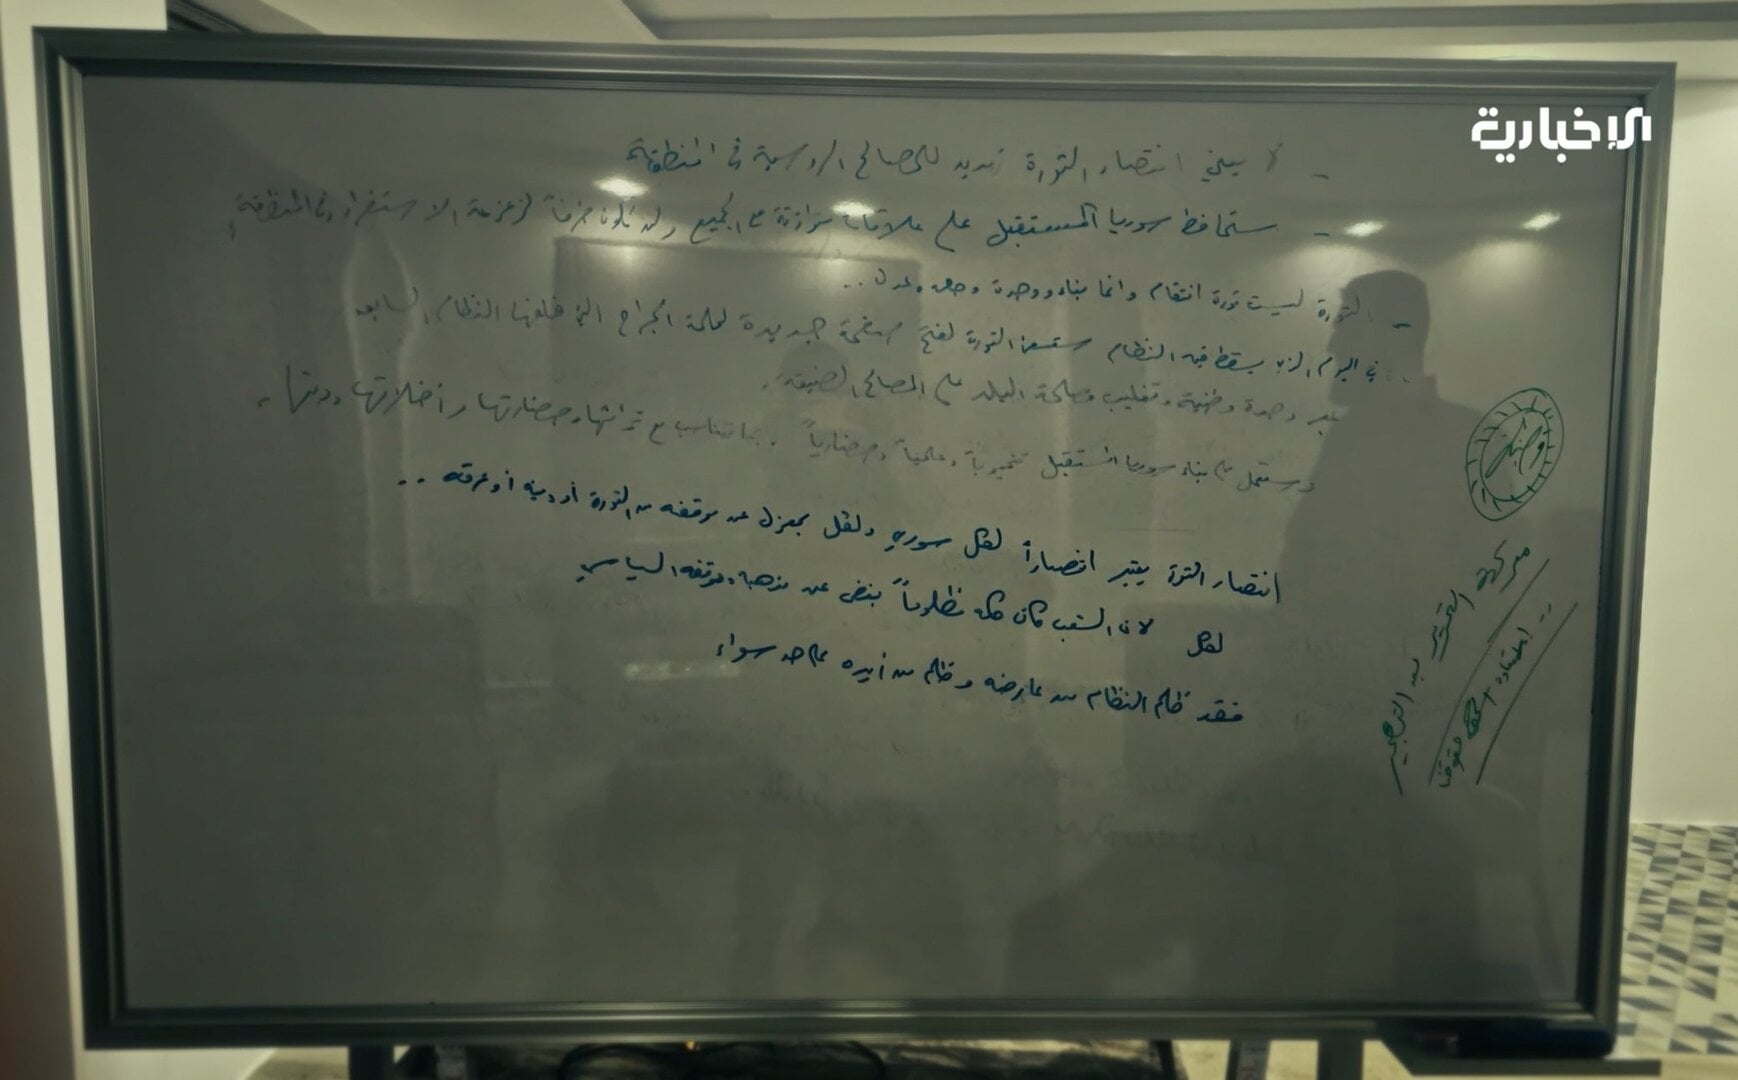 الإخبارية
- لا يعني انتصار الثورة تهديد للمصالح الروسية في المنطقة
- ستحافظ سوريا المستقبل على علاقات متوازنة مع الجميع ولن تكون طرفاً لزعزعة الاستقرار في المنطقة
- الثورة ليست ثورة انتقام وانما بناء ووحدة وحق وعدل ..
.. في اليوم الذي يسقط فيه النظام ستسعى الثورة لفتح صفحة جديدة لململة الجراح التي خلفها النظام السابق
عبر وحدة وطنية وتغليب مصلحة البلد على المصالح الضيقة .
وستعمل على بناء سوريا المستقبل تنموياً وعلمياً وحضارياً . بما يتناسب مع تراثها وحضارتها وأخلاقها ودينها .
انتصار الثورة يعتبر انتصاراً لكل سوري ولكل بمعزل عن موقفه من الثورة أو دينه أو عرقه ..
لكل لان الشعب كان كله مظلوماً بغض عن مذهبه وموقفه السياسي
فقد ظلم النظام من عارضه وظلم من أيده على حد سواء
معركة التحرير بعد التهجير
.. استعادة حقوقنا